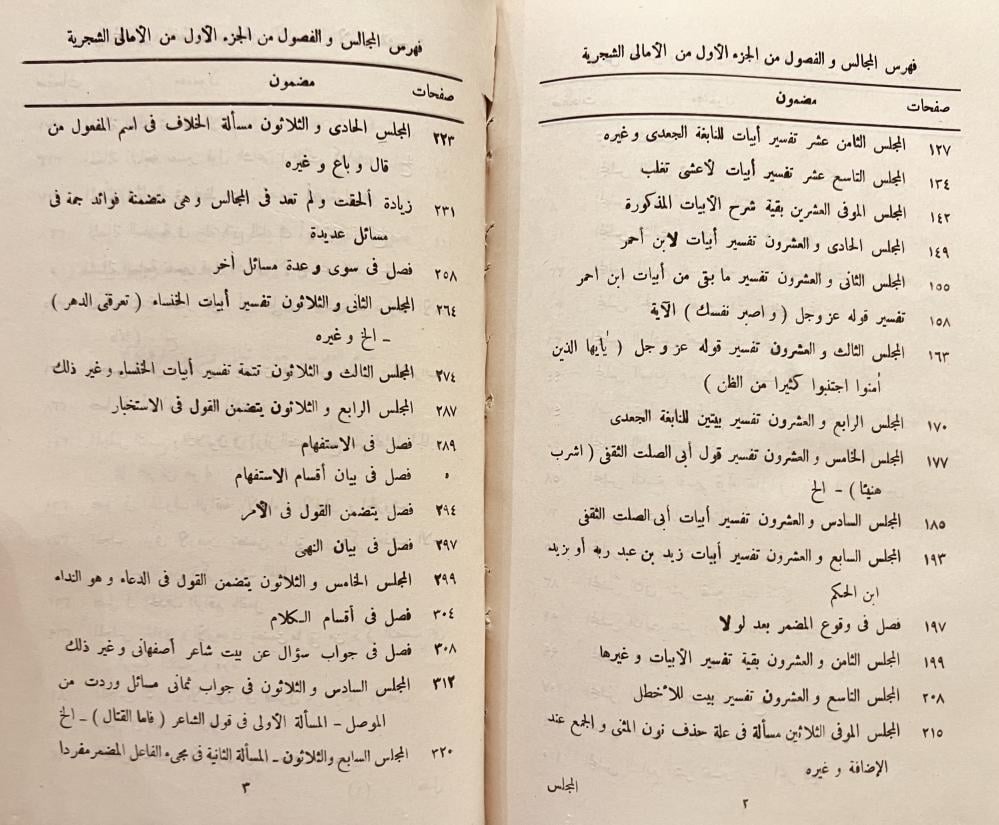 فهرس المجالس و الفصول من الجزء الاول من الامالى الشجرية
صفحات مضمون
١٢٧ المجلس الثامن عشر تفسير أبيات للنابغة الجعدى وغيره
١٣٤ المجلس التاسع عشر تفسير أبيات لأعشى تغلب
١٤٢ المجلس الموفى العشرين بقية شرح الابيات المذكورة
١٤٩ المجلس الحادى و العشرون تفسير أبيات لابن أحمر
١٥٥ المجلس الثانى و العشرون تفسير ما بقى من أبيات ابن احمر
١٥٨ تفسير قوله عز وجل ( و اصبر نفسك ) الآية
١٦٣ المجلس الثالث و العشرون تفسير قوله عز و جل ( يٰأيها الذين
اٰمنوا اجتنبوا كثيرا من الظن )
١٧٠ المجلس الرابع و العشرون تفسير بيتين للنابغة الجعدى
١٧٧ المجلس الخامس و العشرون تفسير قول أبى الصلت الثقفى ( اشرب
هنيئا ) - الخ
١٨٥ المجلس السادس و العشرون تفسير أبيات أبى الصلت الثقفى
١٩٣ المجلس السابع و العشرون تفسير أبيات زيد بن عبد ربه أو يزيد
ابن الحكم
١٩٧ فصل فى وقوع المضمر بعد لولا
١٩٩ المجلس الثامن و العشرون بقية تفسير الابيات و غيرها
٢٠٨ المجلس التاسع و العشرون تفسير بيت للأخطل
٢١٥ المجلس الموفى الثلاثين مسألة فى علة حذف نون المثنى و الجمع عند
الإضافة و غيره
المجلس
٢
فهرس المجالس و الفصول من الجزء الاول من الامالى الشجرية
صفحات مضمون
٢٢٣ المجلس الحادى و الثلاثون مسألة الخلاف فى اسم المفعول من
قال و باع و غيره
٢٣١ زيادة ألحقت و لم تعد فى المجالس و هى متضمنة فوائد جمة فى
مسائل عديدة
٢٥٨ فصل فى سوى و عدة مسائل أخر
٢٦٤ المجلس الثانى و الثلاثون تفسير أبيات الخنساء ( تعرقنى الدهر )
- الخ و غيره
٢٧٤ المجلس الثالث و الثلاثون تتمة تفسير أبيات الخنساء و غير ذلك
٢٨٧ المجلس الرابع و الثلاثون يتضمن القول فى الاستخبار
٢٨٩ فصل فى الاستفهام
٥ فصل فى بيان أقسام الاستفهام
٢٩٤ فصل يتضمن القول فى الأمر
٢٩٧ فصل فى بيان النهى
٢٩٩ المجلس الخامس و الثلاثون يتضمن القول فى الدعاء و هو النداء
٣٠٤ فصل فى أقسام الكلام
٣٠٨ فصل فى جواب سؤال عن بيت شاعر أصفهانى و غير ذلك
٣١٢ المجلس السادس و الثلاثون فى جواب ثمانى مسائل وردت من
الموصل - المسألة الأولى فى قول الشاعر ( فاما القتال ) - الخ
٣٢٠ المجلس السابع والثلاثون - المسألة الثانية فى مجىء الفاعل المضمر مفردا
٣